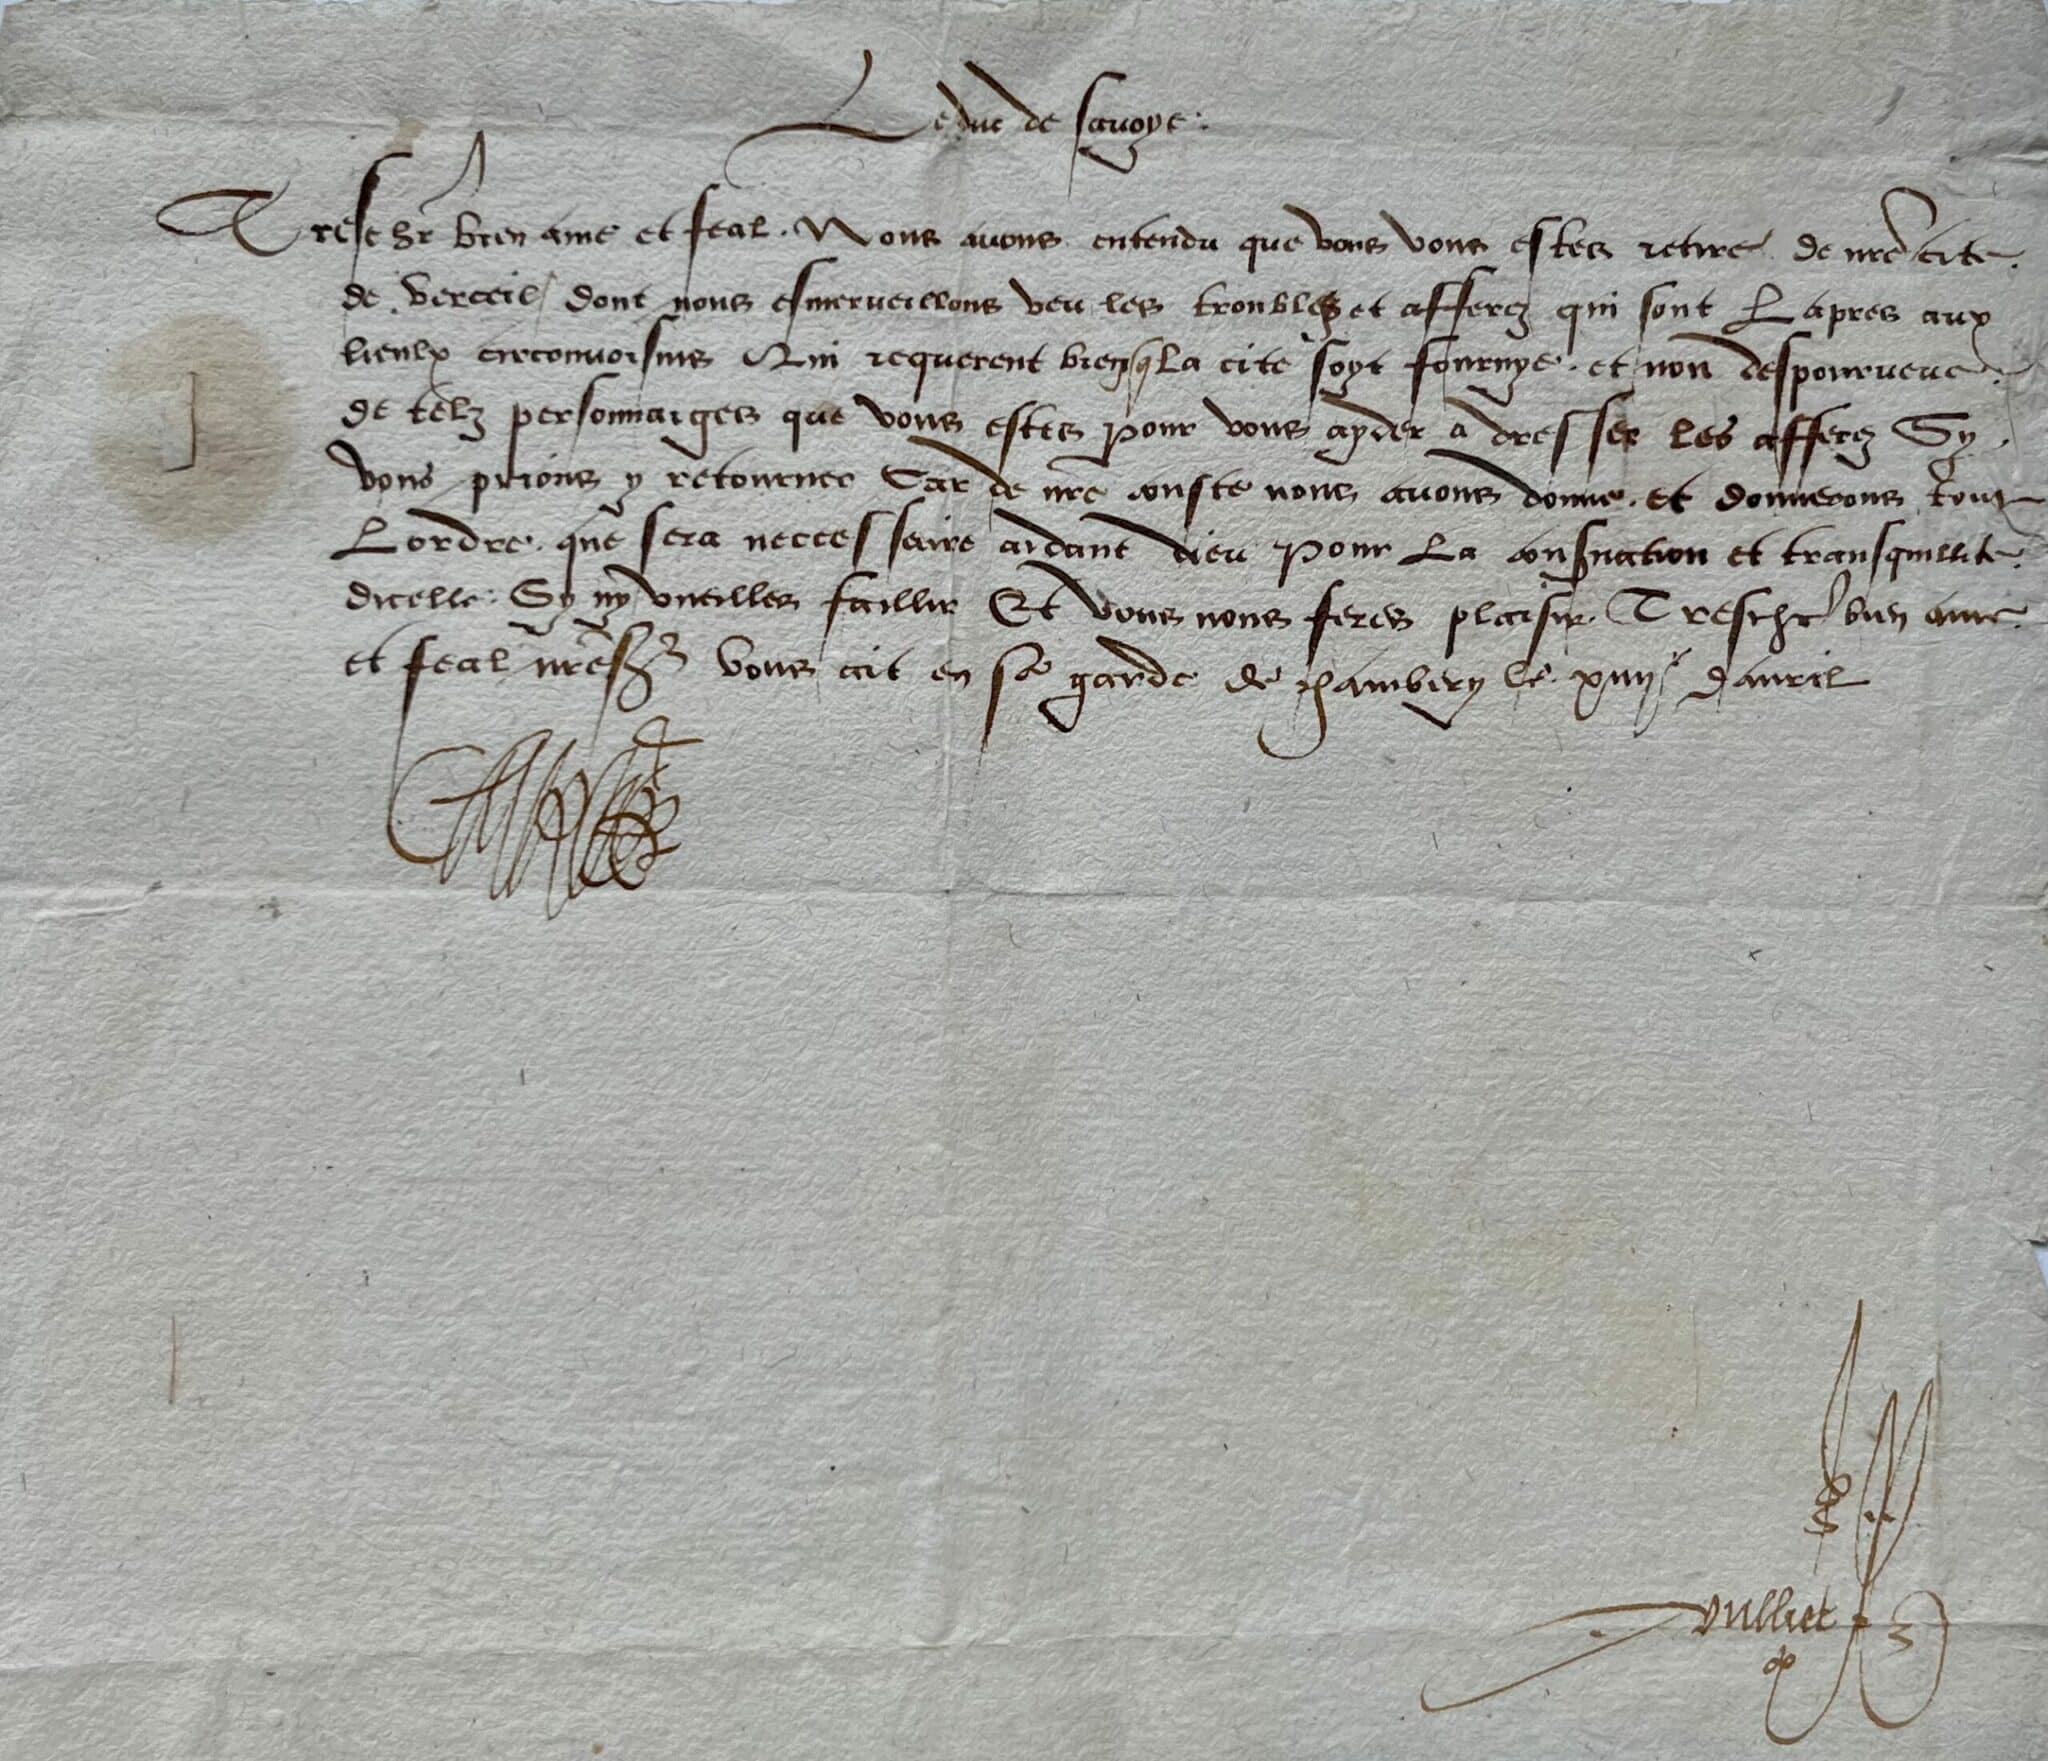 Le duc de Savoye.
Treschr bien ame et feal. Nous auons entendu que vous vous estes retire de nre cite
de Verceil dont nous esmerueillons veu les troubles et afferez qui sont Lapres aux
lieulx circonuoisins Qui requerent bien q La cite soyt fournye. et non despourueue
de telz personnaiges que vous estes pour vous ayder a dresser les afferez Sy
vous prions y retourner Car de nre couste nous auons donne. et donnerons tout
Lordre. que sera neccessaire aidant dieu pour La consuation et transquillite
dicelle. Sy ny vueilles faillir Et vous nous feres plaisir. Treschr bien ame
et feal nre Sr vous ait en sa garde de Chambery le xiiij d auril
Vulliet